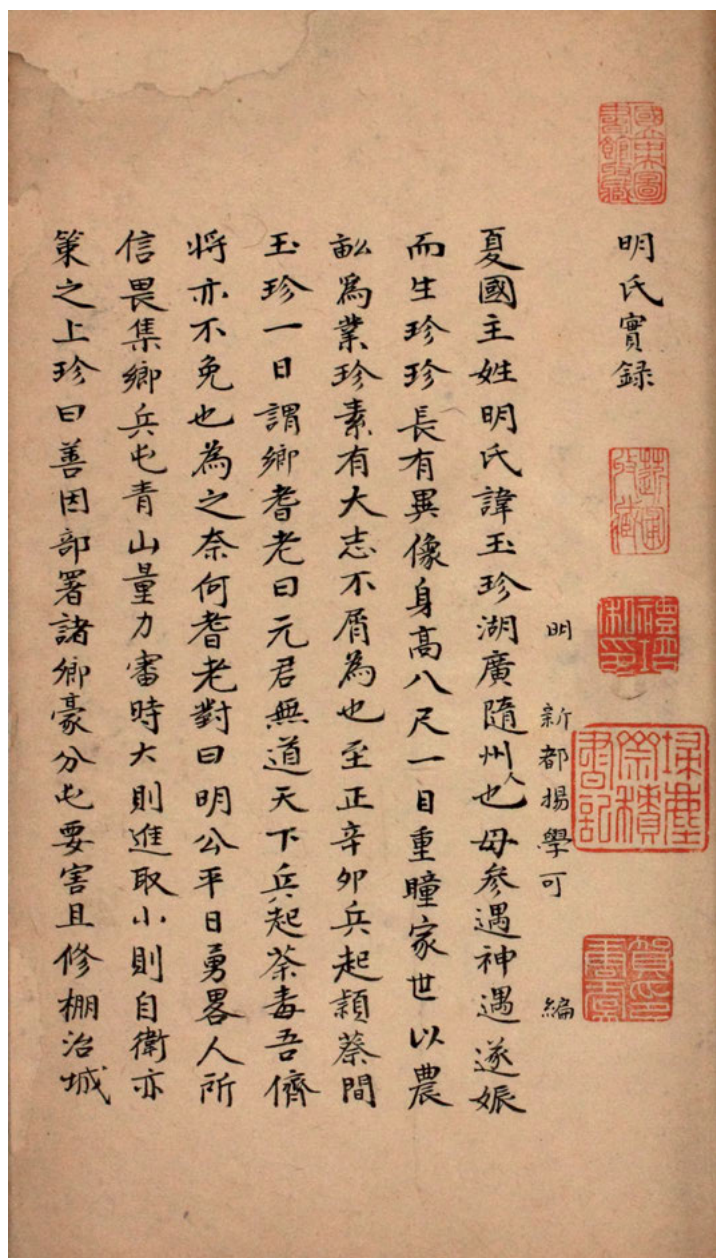 明氏實録
禮培私印
埽塵齋積書記
明 新都揚學可 編
夏國主姓明氏諱玉珍湖廣隨州人也母參遇神遇遂娠
而生珍珍長有異像身高八尺一目重瞳家世以農
畝爲業珍素有大志不屑為也至正辛夘兵起頴蔡間
玉珍一日謂鄉耆老曰元君無道天下兵起荼毒吾儕
将亦不免也為之奈何耆老對曰明公平日勇畧人所
信畏集鄉兵屯青山量力審時大則進取小則自衛亦
策之上珍曰善因部署諸鄉豪分屯要害且修棚治城